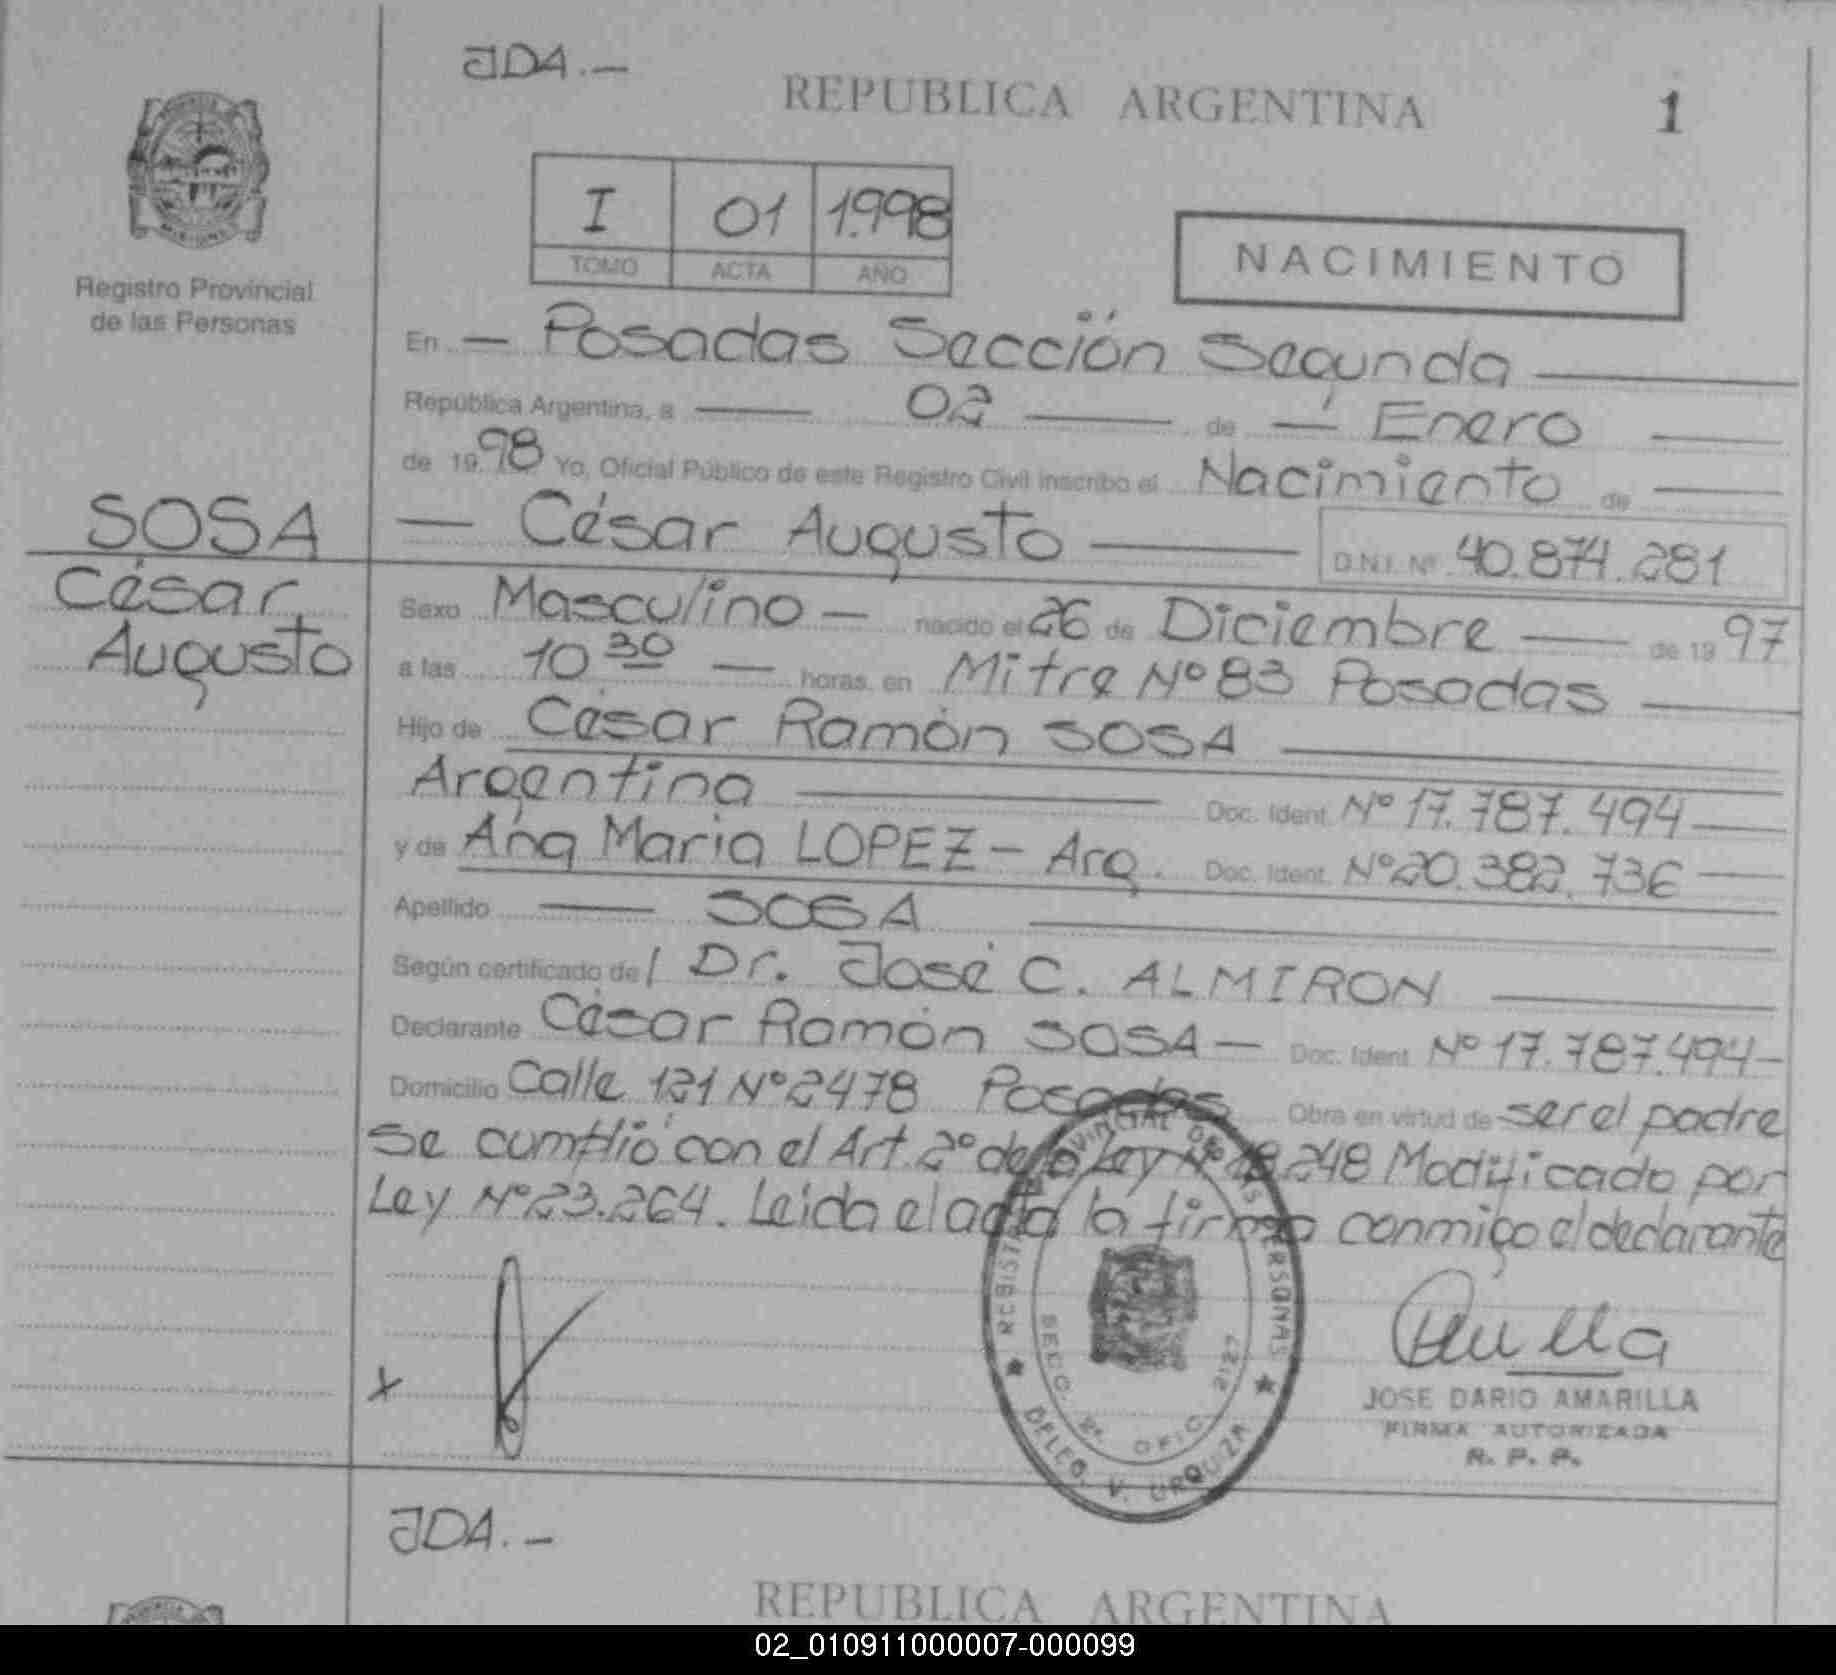 JDA.-
REPUBLICA ARGENTINA
1
I 01 1.998
TOMO ACTA AÑO
NACIMIENTO
MISIONES
Registro Provincial
de las Personas
En - Posadas Sección Segunda
República Argentina, a 02 de - Enero
de 1998 Yo, Oficial Público de este Registro Civil inscribo el Nacimiento de
SOSA
César
Augusto
- César Augusto D.N.I. Nº 40.874.281
Sexo Masculino - nacido el 26 de Diciembre de 1997
a las 10 30 - horas, en Mitre Nº 83 Posadas
Hijo de César Ramón SOSA
Argentina Doc. Ident. Nº 17.787.494
y de Ana Maria LOPEZ - Arg. Doc. Ident. Nº 20.382.736
Apellido SOSA
Según certificado de Dr. José C. ALMIRON
Declarante César Ramón SOSA - Doc. Ident. Nº 17.787.494-
Domicilio Calle 121 Nº 2478 Posadas Obra en virtud de ser el padre
Se cumplió con el Art. 2º de la Ley Nº 18.248 Modificado por
Ley Nº 23.264. Leida el acta la firma conmigo el declarante
x
REGISTRO PROVINCIAL DE LAS PERSONAS
SECC. 2ª OFIC. 2127
DELEG. V. URQUIZA
JOSE DARIO AMARILLA
FIRMA AUTORIZADA
R. P. P.
JDA.-
REPUBLICA ARGENTINA
02_010911000007-000099